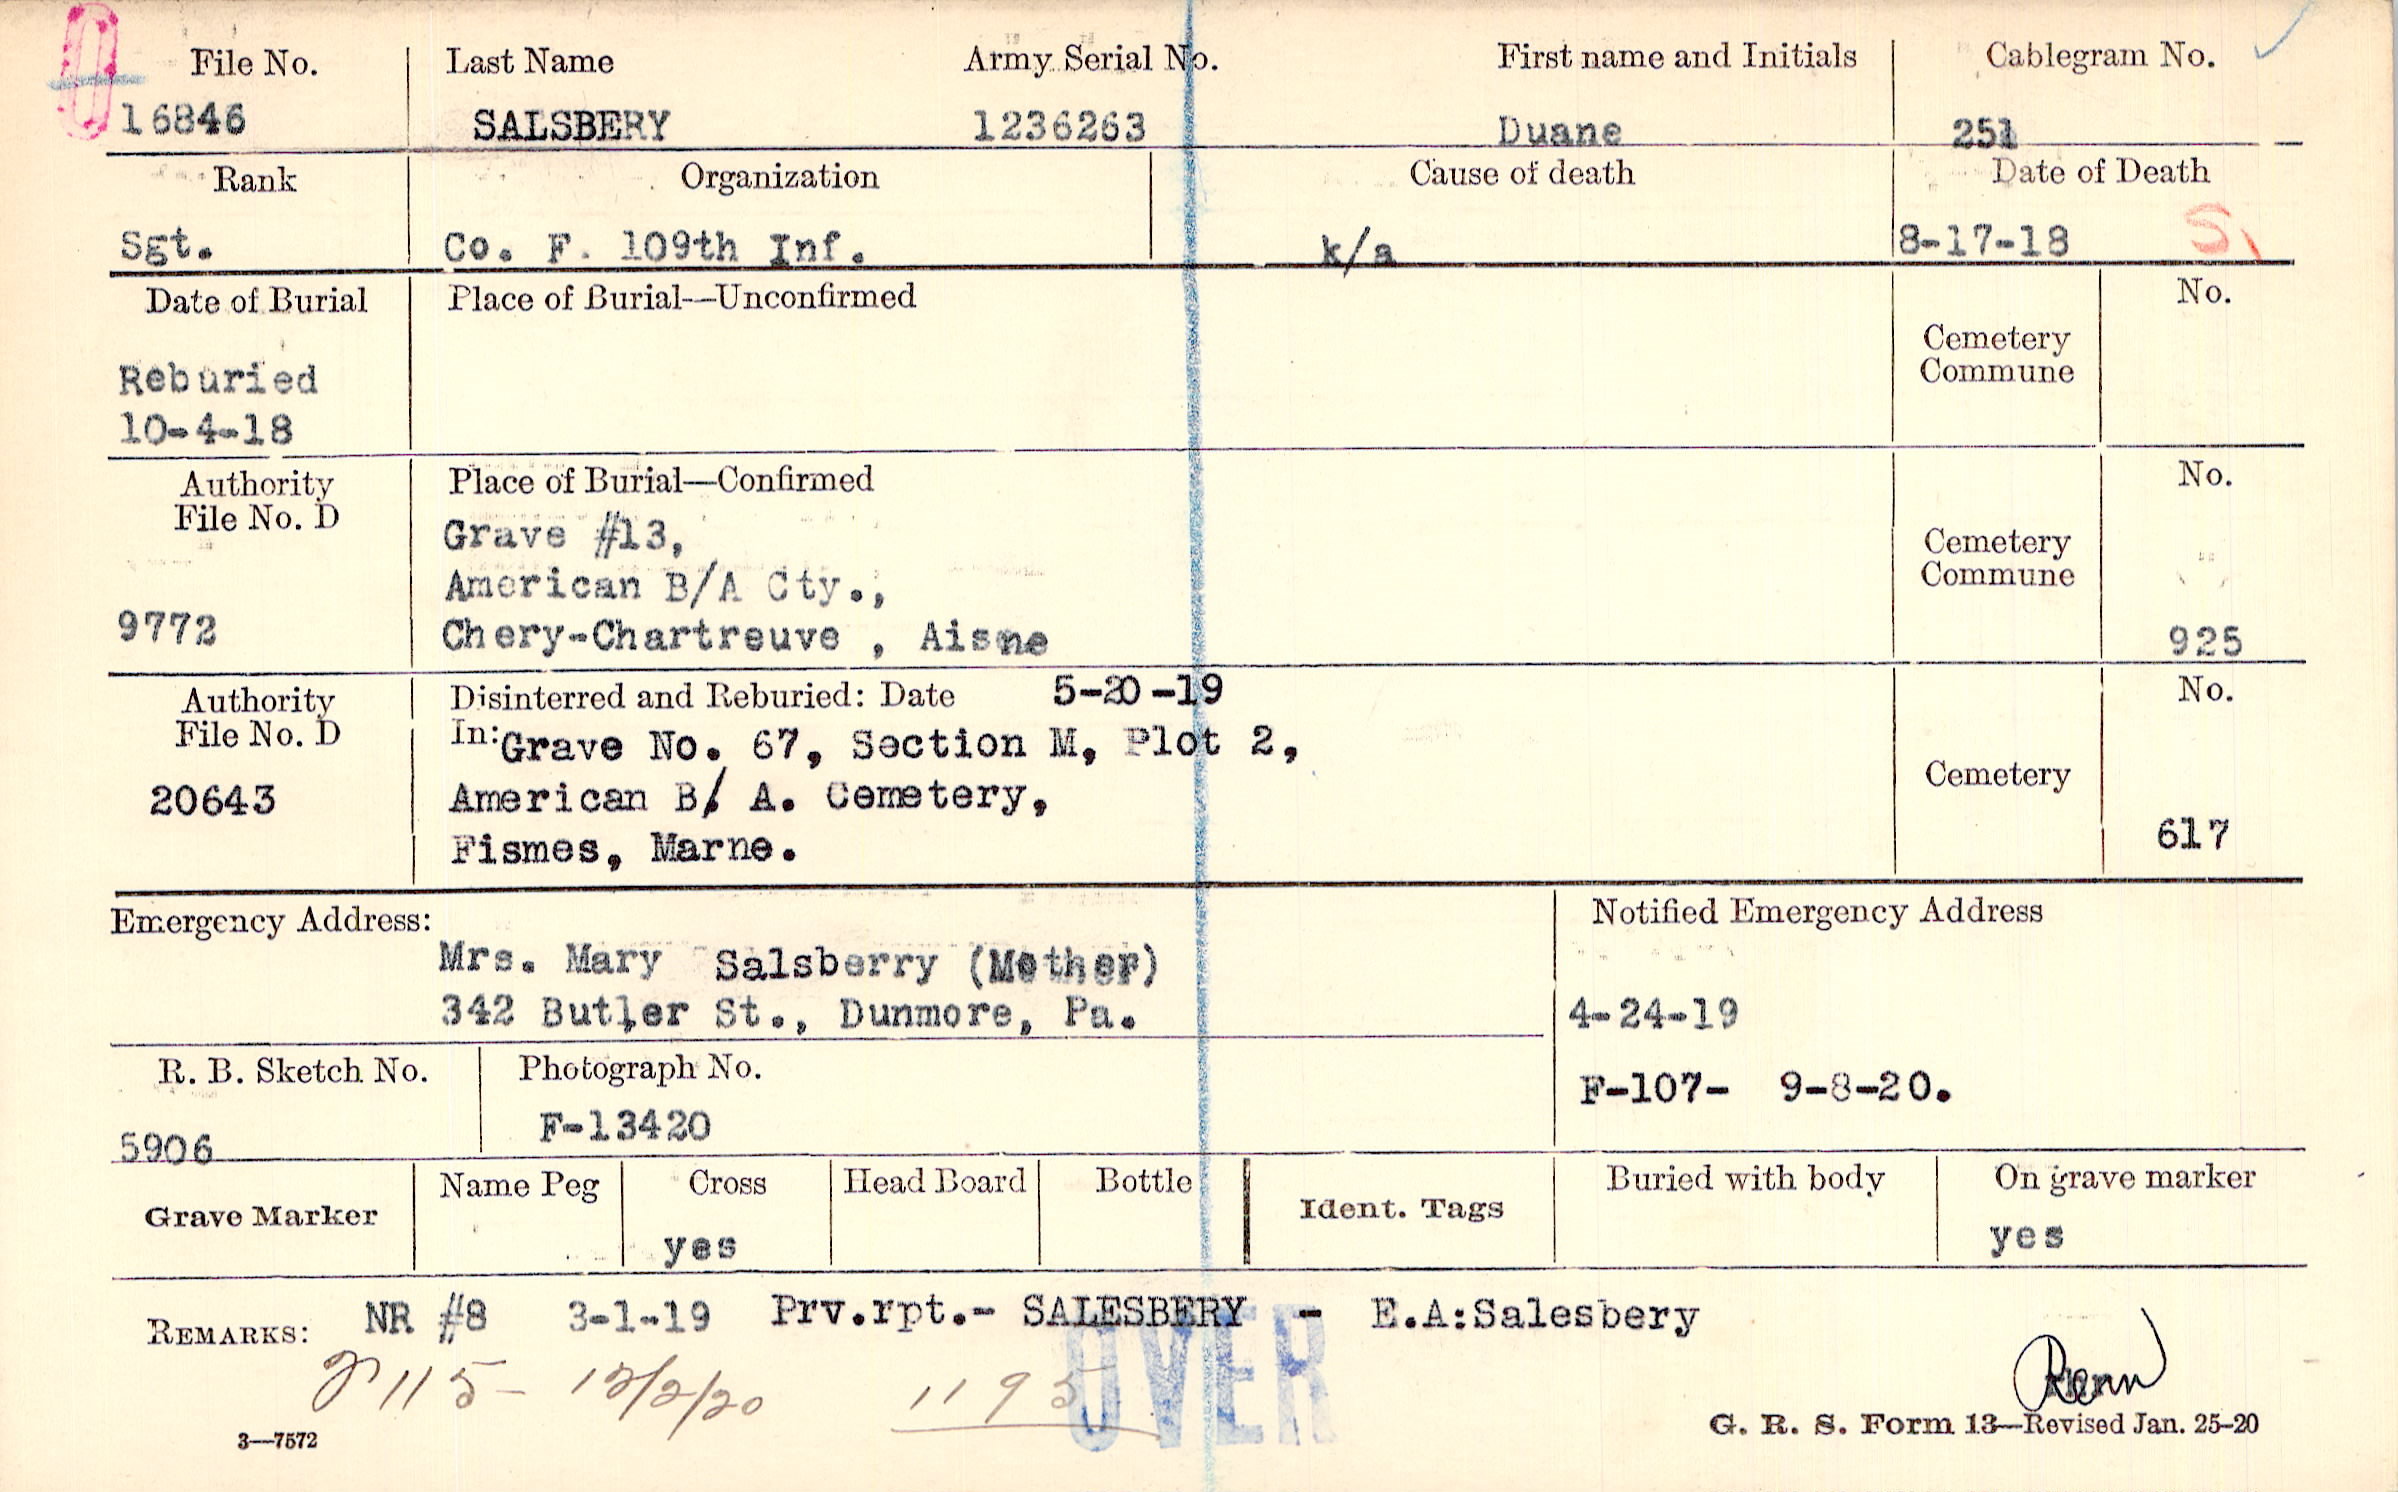 File No. Last Name Army Serial No. First name and Initials Cablegram No.
16846 SALSBERY 1236263 Duane 251
Rank Organization Cause of death Date of Death
Sgt. Co. F. 109th Inf. k/a 8-17-18 S
Date of Burial Place of Burial—Unconfirmed No.
Cemetery
Commune
Reburied
10-4-18
Authority Place of Burial—Confirmed No.
File No. D
Grave #13,
Cemetery
American B/A Cty., Commune
9772 Chery-Chartreuve , Aisne 925
Authority Disinterred and Reburied: Date 5-20-19 No.
File No. D In: Grave No. 67, Section M, Plot 2,
Cemetery
20643 American B/ A. Cemetery,
Fismes, Marne. 617
Emergency Address: Notified Emergency Address
Mrs. Mary Salsberry (Mother)
342 Butler St., Dunmore, Pa. 4-24-19
R. B. Sketch No. Photograph No.
F-107- 9-8-20.
5906 F-13420
Grave Marker Name Peg Cross Head Board Bottle Ident. Tags Buried with body On grave marker
yes yes
REMARKS: NR #8 3-1-19 Prv.rpt.- SALESBERY - E.A:Salesbery
115- 12/2/20 1195 OVER
G. R. S. Form 13—Revised Jan. 25-20
3—7572